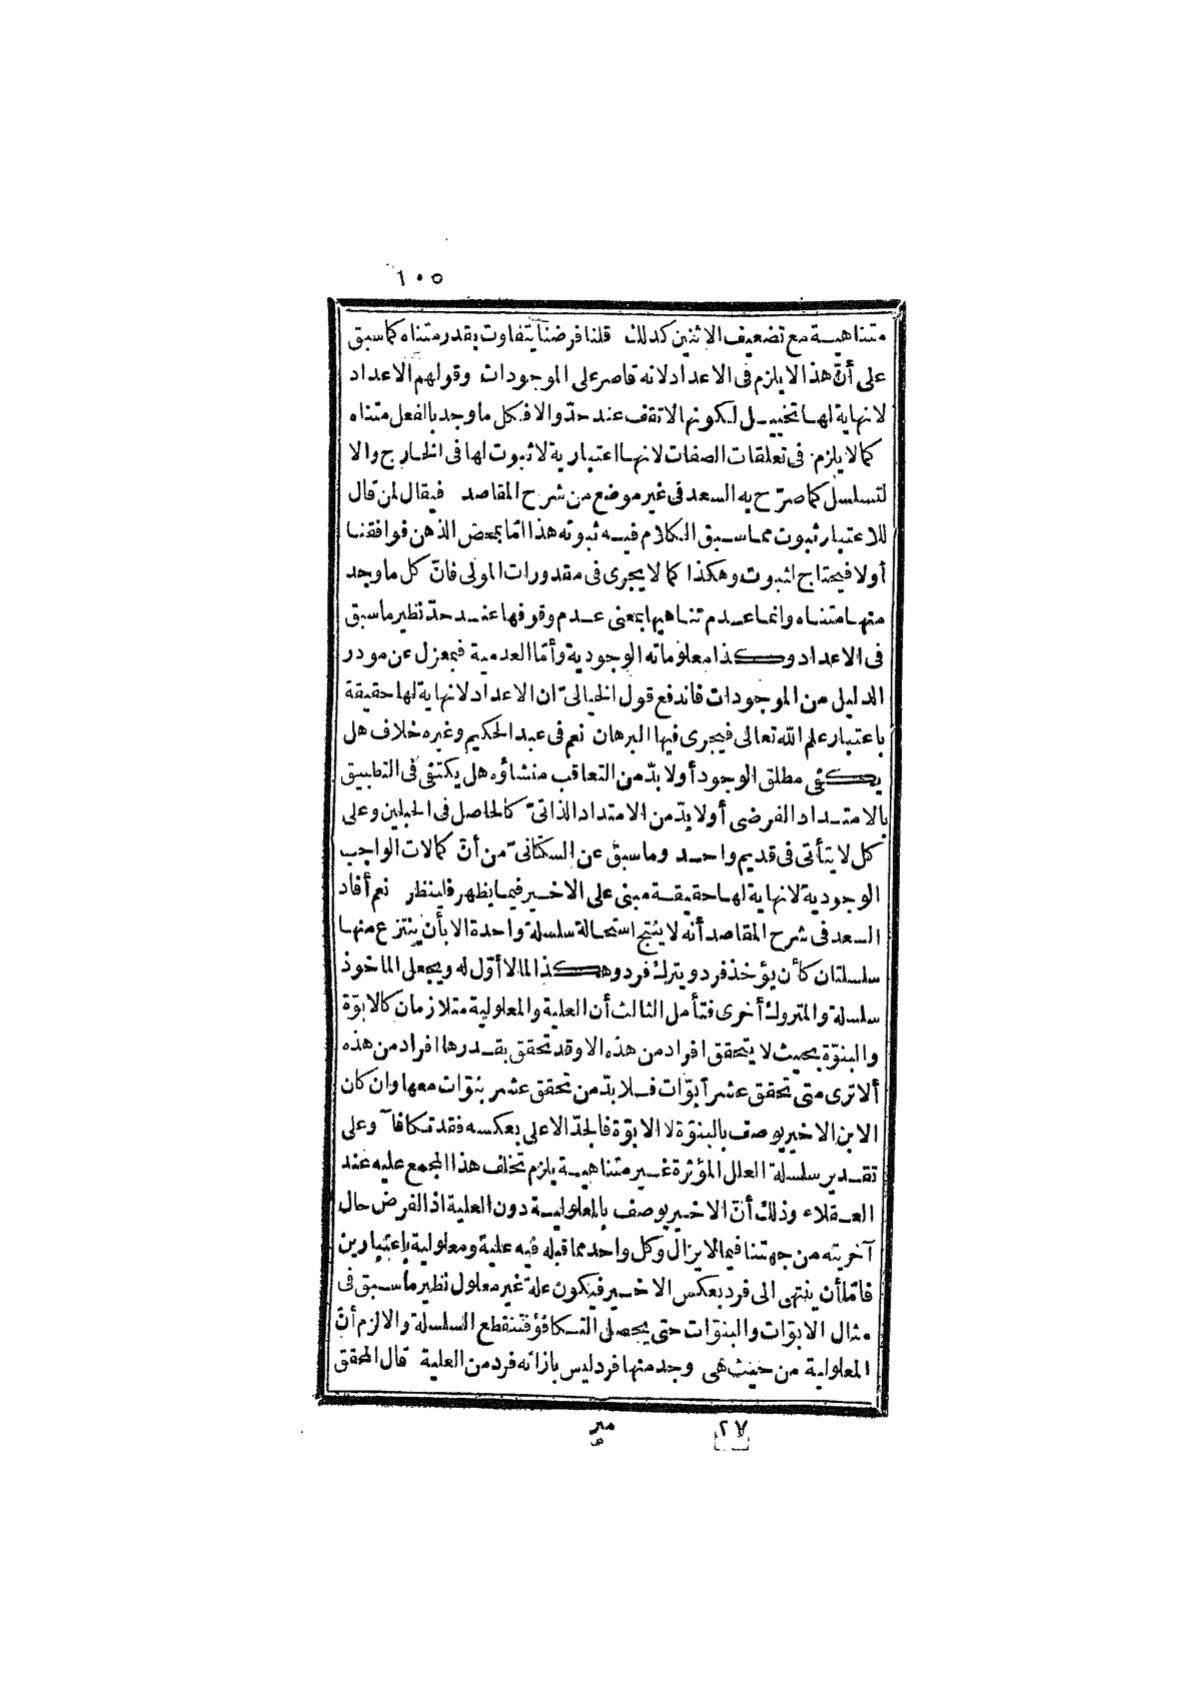 ١٠٥
متناهية مع تضعيف الاثنين كذلك قلنا فرضنا يتفاوت بقدر متناه كما سبق
على أنّ هذا لا يلزم فى الاعداد لانه قاصر على الموجودات وقولهم الاعداد
لا نهاية لها تخييل لكونها لا تقف عند حدّ والا فكل ما وجد بالفعل متناه
كما لا يلزم فى تعلقات الصفات لانها اعتبارية لا ثبوت لها فى الخارج والا
لتسلسل كما صرّح به السعد فى غير موضع من شرح المقاصد فيقال لمن قال
للاعتبار ثبوت مما سبق الكلام فيه ثبوته هذا امّا بمحض الذهن فوافقنا
أولا فيحتاج لثبوت وهكذا كما لا يجرى فى مقدورات المولى فانّ كل ما وجد
منها متناه وانما عدم تناهيها بمعنى عدم وقوفها عند حدّ نظير ما سبق
فى الاعداد وكذا معلوماته الوجودية وأمّا العدمية فبمعزل عن مورد
الدليل من الموجودات فاندفع قول الخيالىّ ان الاعداد لا نهاية لها حقيقة
باعتبار علم الله تعالى فيجرى فيها البرهان نعم فى عبد الحكيم وغيره خلاف هل
يكفى مطلق الوجود أولا بدّ من التعاقب منشاؤه هل يكتفى فى التطبيق
بالامتداد الفرضى أولا بدّ من الامتداد الذاتىّ كالحاصل فى الحبلين وعلى
كل لا يتأتى فى قديم واحد وما سبق عن السكتانىّ من أنّ كمالات الواجب
الوجودية لا نهاية لها حقيقة مبنى على الاخير فيما يظهر فلينظر نعم أفاد
السعد فى شرح المقاصد أنه لا ينتج استحالة سلسلة واحدة الا بأن ينتزع منها
سلسلتان كأن يؤخذ فرد ويترك فرد وهكذا لما لا أوّل له ويجعل الماخوذ
سلسلة والمتروك أخرى فتأمل الثالث أن العلية والمعلولية متلازمان كالابوّة
والبنوّة بحيث لا يتحقق افراد من هذه الا وقد تحقق بقدرها افراد من هذه
ألا ترى متى تحقق عشر أبوّات فلا بدّ من تحقق عشر بنوّات معها وان كان
الابن الاخير يوصف بالبنوّة لا الابوّة فالجدّ الاعلى بعكسه فقد تكافآ وعلى
تقدير سلسلة العلل المؤثرة غير متناهية يلزم تخلف هذا المجمع عليه عند
العقلاء وذلك أنّ الاخير يوصف بالمعلولية دون العلية اذ الفرض حال
آخريته من جهتنا فيما لا يزال وكل واحد مما قبله فيه علية ومعلولية باعتبارين
فامّا أن ينتهى الى فرد بعكس الاخير فيكون علة غير معلول نظير ما سبق فى
مثال الابوّات والبنوّات حتى يحصل التكافؤ فتنقطع السلسلة والا لزم أنّ
المعلولية من حيث هى وجد منها فرد ليس بازائه فرد من العلية قال المحقق
٢٧ مير